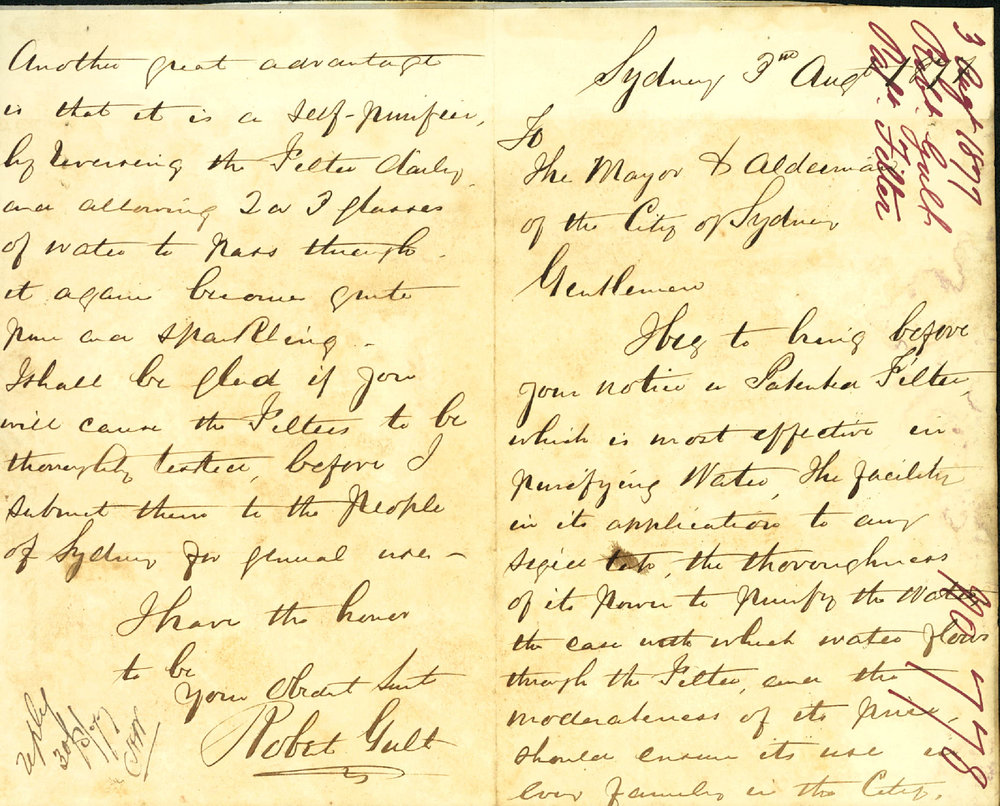 Sydney 3rd Augt 1877
To
The Mayor & Aldermen
of the City of Sydney
Gentlemen
I beg to bring before
your notice a Patented Filter,
which is most effective in
purifying Water, The facility
in its application to any
sized tap, the thoroughness
of its power to purify the Water
the ease with which water flows
through the Filter, and the
moderateness of its price,
should ensure its use in
every family in the City.
Another great advantage
is that it is a self-purifier,
by reversing the Filter daily
and allowing 2 or 3 glasses
of water to pass through
it again become quite
pure and sparkling -
I shall be glad if you
will cause the Filters to be
thoroughly tested, before I
submit them to the People
of Sydney for general use -
I have the honor
to be
Your Obedt Servt
Robert Gult
3 Augt 1877
Robt Gult
Filter
No 778
reply